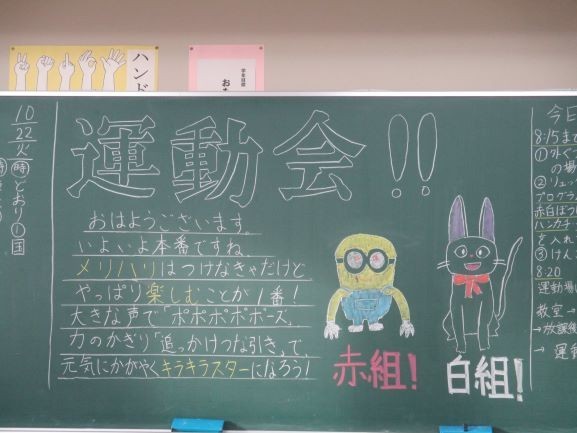 ハンド
学年目標
10
22
火
時 どおり① 国
運動会!!
おはようございます。
いよいよ本番ですね。
メリハリはつけなきゃだけど
やっぱり楽しむことが1番!
大きな声で「ポポポポポーズ」、
力のかぎり「追っかけつな引き」で、
元気にかがやくキラキラスターになろう!
赤組!
白組!
今日
8:15まで
①外ぐ
の場
②リュッ
プログラ
赤白ぼう
ハンカチ
を入れ
③けん
8:20
運動場
教室→
→放課後
→ 運動